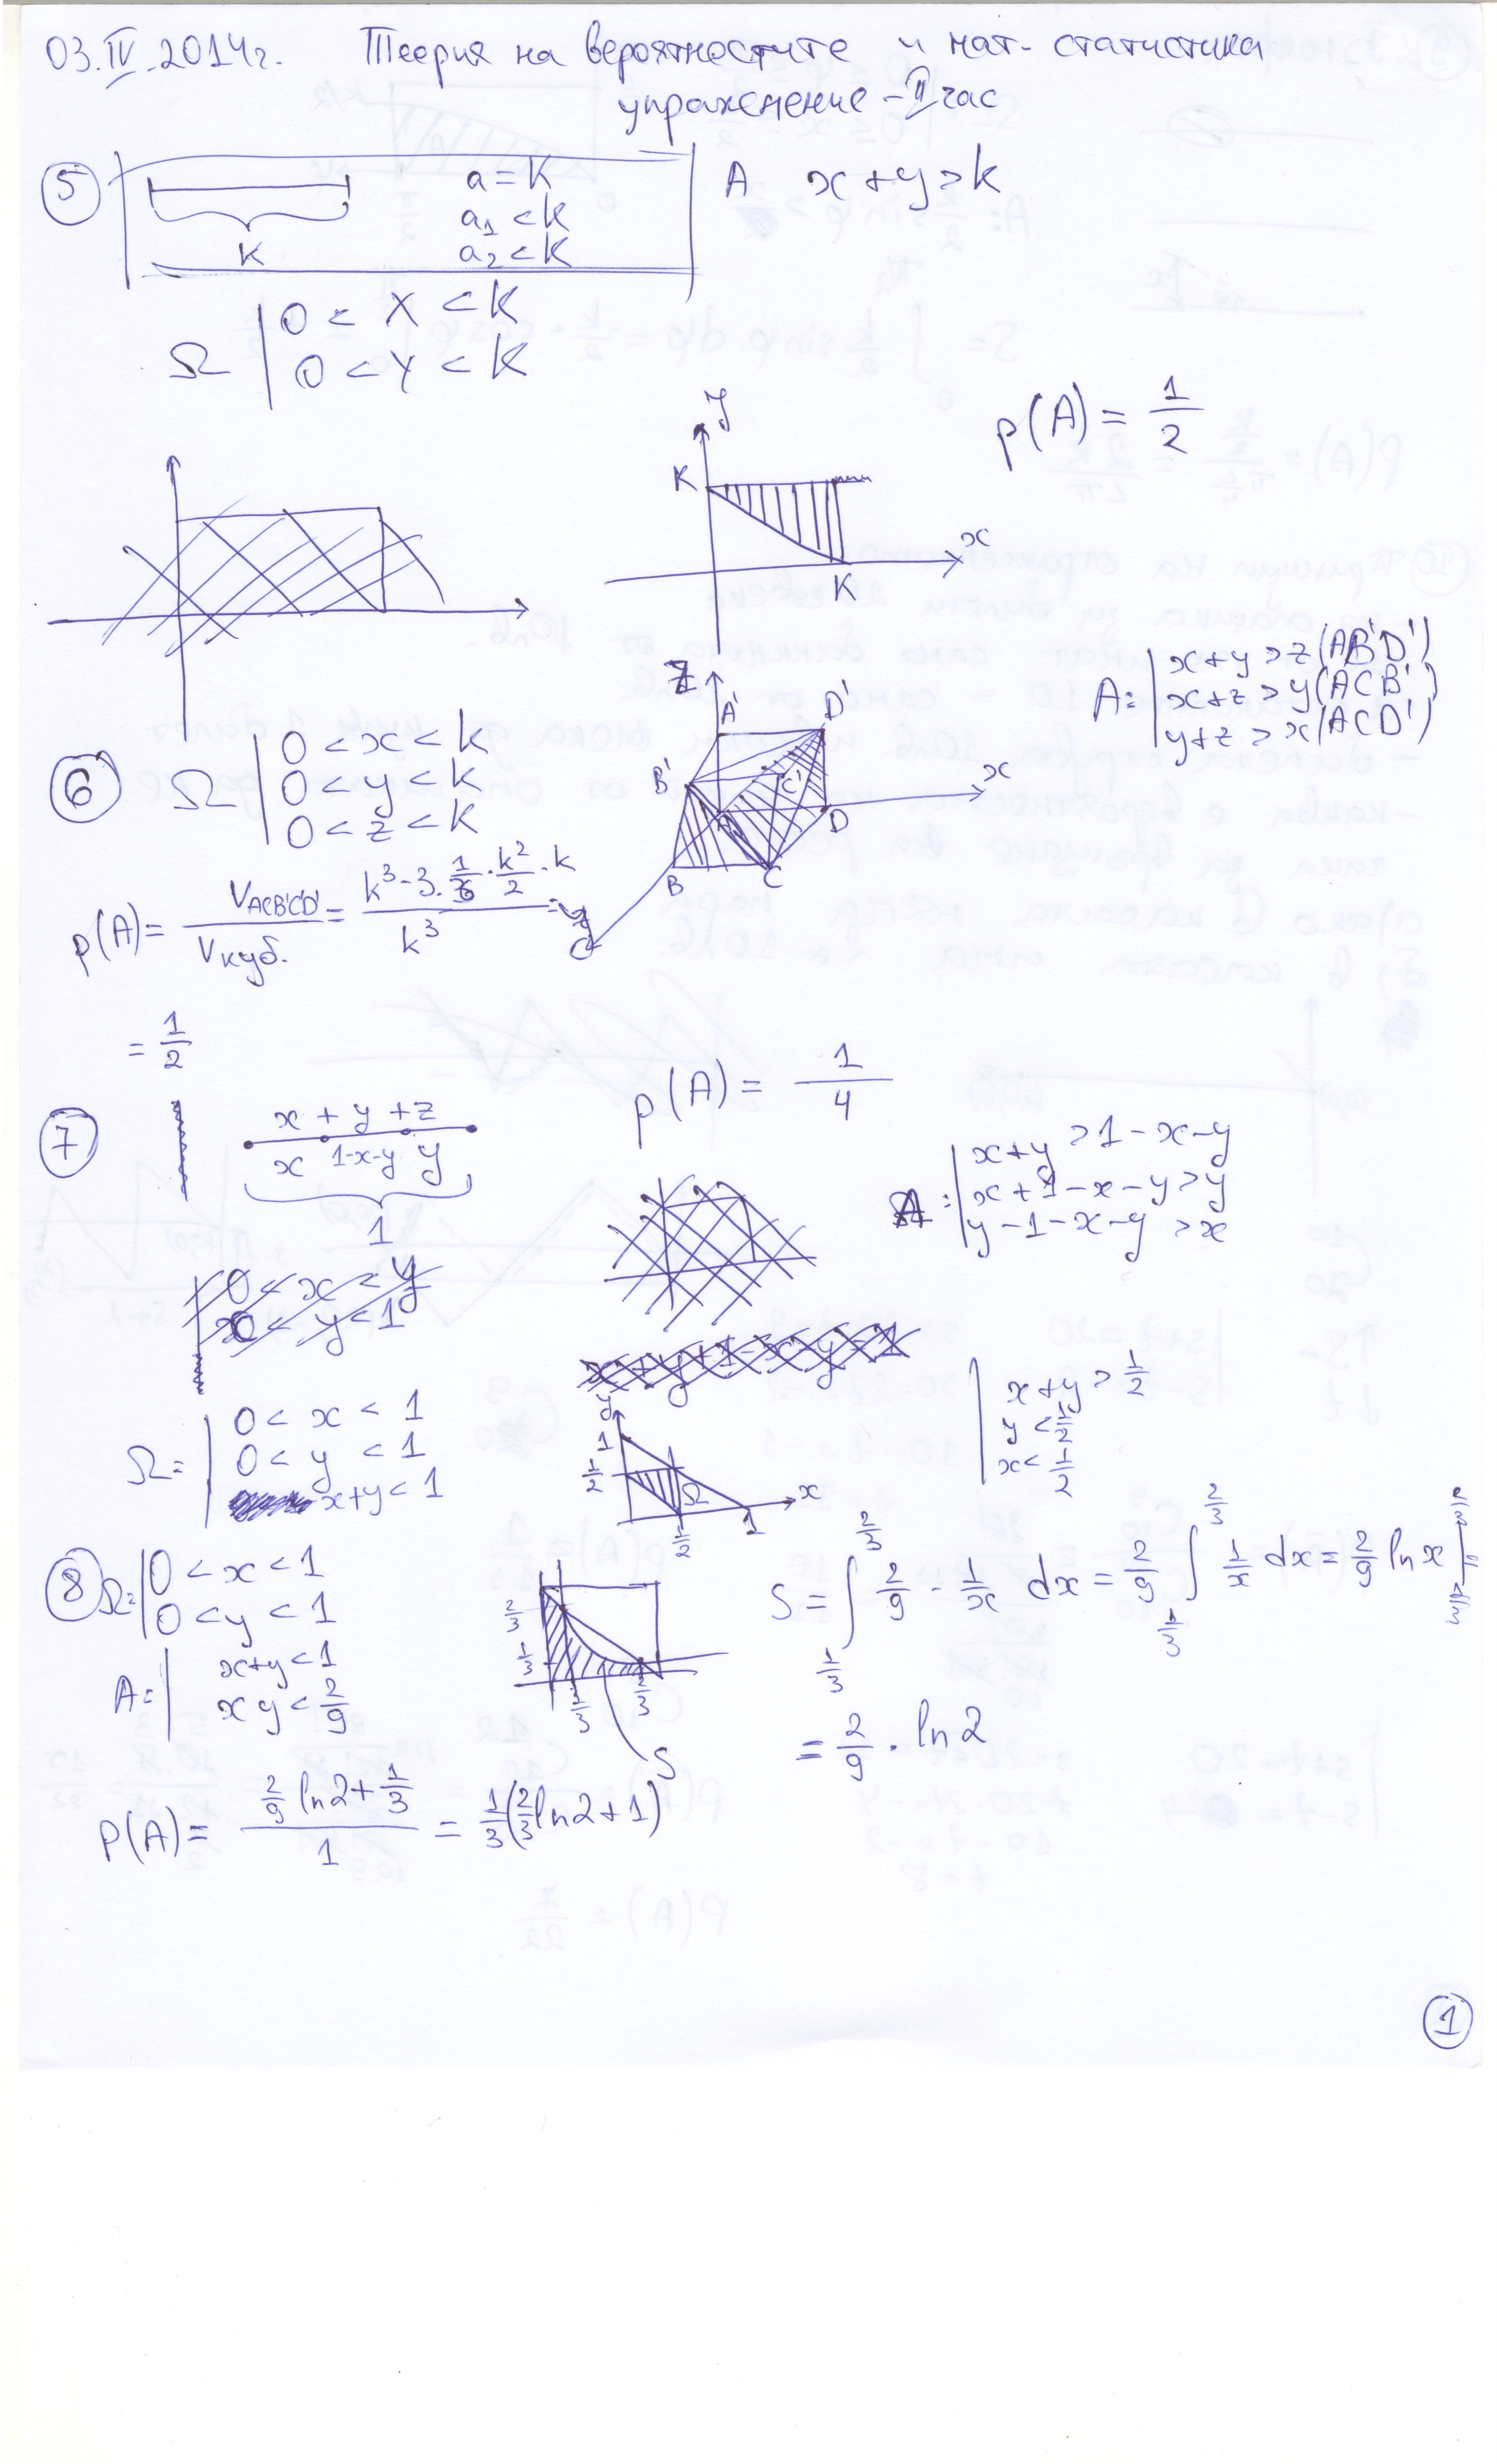 03.IV.2014г. Теория на вероятностите и мат. статистика
упражнение - II час
5
a = K
a₁ < K
a₂ < K
K
A x+y>k
Ω | 0 < X < K
0 < Y < K
p(A) = 1/2
y
K
x
K
6
Ω | 0 < x < k
0 < y < k
0 < z < k
Z
A' D'
B' C'
x
A D
B C
A: | x+y > z (AB'D')
x+z > y (ACB')
y+z > x (ACD')
p(A) = V_ACB'C'D' / V куб. = (k³ - 3 · 1/3 · k²/2 · k) / k³ =
= 1/2
7
x + y + z
x 1-x-y y
1
p(A) = 1/4
A: | x+y > 1-x-y
x+1-x-y > y
y-1-x-y > x
0 < x < y
x < y < 1
x+y+1-x-y = 1
| x+y > 1/2
y < 1/2
x < 1/2
Ω = | 0 < x < 1
0 < y < 1
x+y < 1
y
1
1/2
Ω
x
1/2 1
8
Ω = | 0 < x < 1
0 < y < 1
A = | x+y < 1
xy < 2/9
2/3
1/3
1/3 2/3
S
S = ∫_{1/3}^{2/3} 2/9 - 1/x dx = 2/9 ∫_{1/3}^{2/3} 1/x dx = 2/9 ln x |
= 2/9 · ln2
P(A) = (2/9 ln2 + 1/3) / 1 = 1/3 (2/3 ln2 + 1)
1